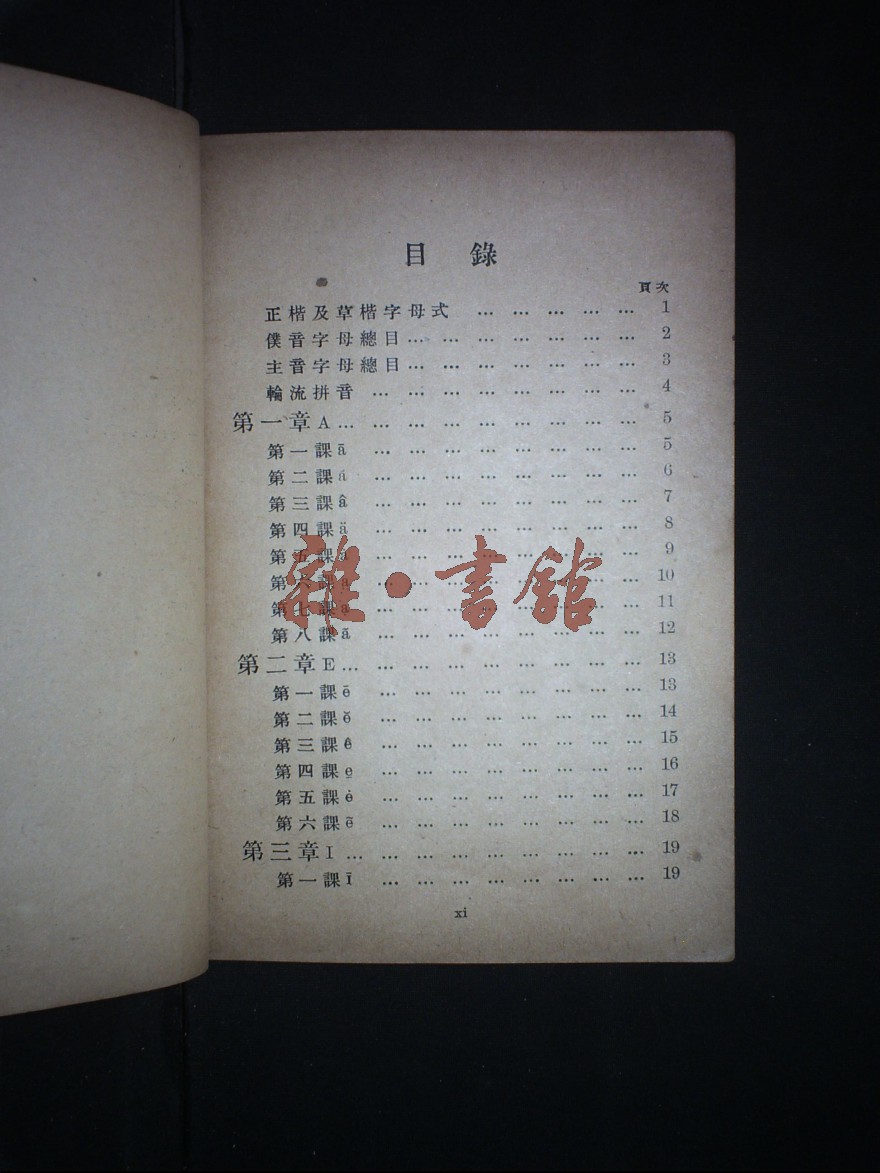 目錄
頁次
正楷及草楷字母式 … … … … … 1
僕音字母總目… … … … … … … 2
主音字母總目… … … … … … … 3
輪流拼音 … … … … … … … … 4
第一章 A… … … … … … … … … 5
第一課 ā … … … … … … … … 5
第二課 … … … … … … … … 6
第三課 â … … … … … … … … 7
第四課 ä … … … … … … … … 8
第五課 … … … … … … … … 9
第六課 … … … … … … … … 10
第七課 … … … … … … … … 11
第八課 … … … … … … … … 12
雜·書館
第二章 E… … … … … … … … … 13
第一課 ē … … … … … … … … 13
第二課 ĕ … … … … … … … … 14
第三課 ê … … … … … … … … 15
第四課 … … … … … … … … 16
第五課 ė … … … … … … … … 17
第六課 ẽ … … … … … … … … 18
第三章 I … … … … … … … … … 19
第一課 ī … … … … … … … … 19
xi